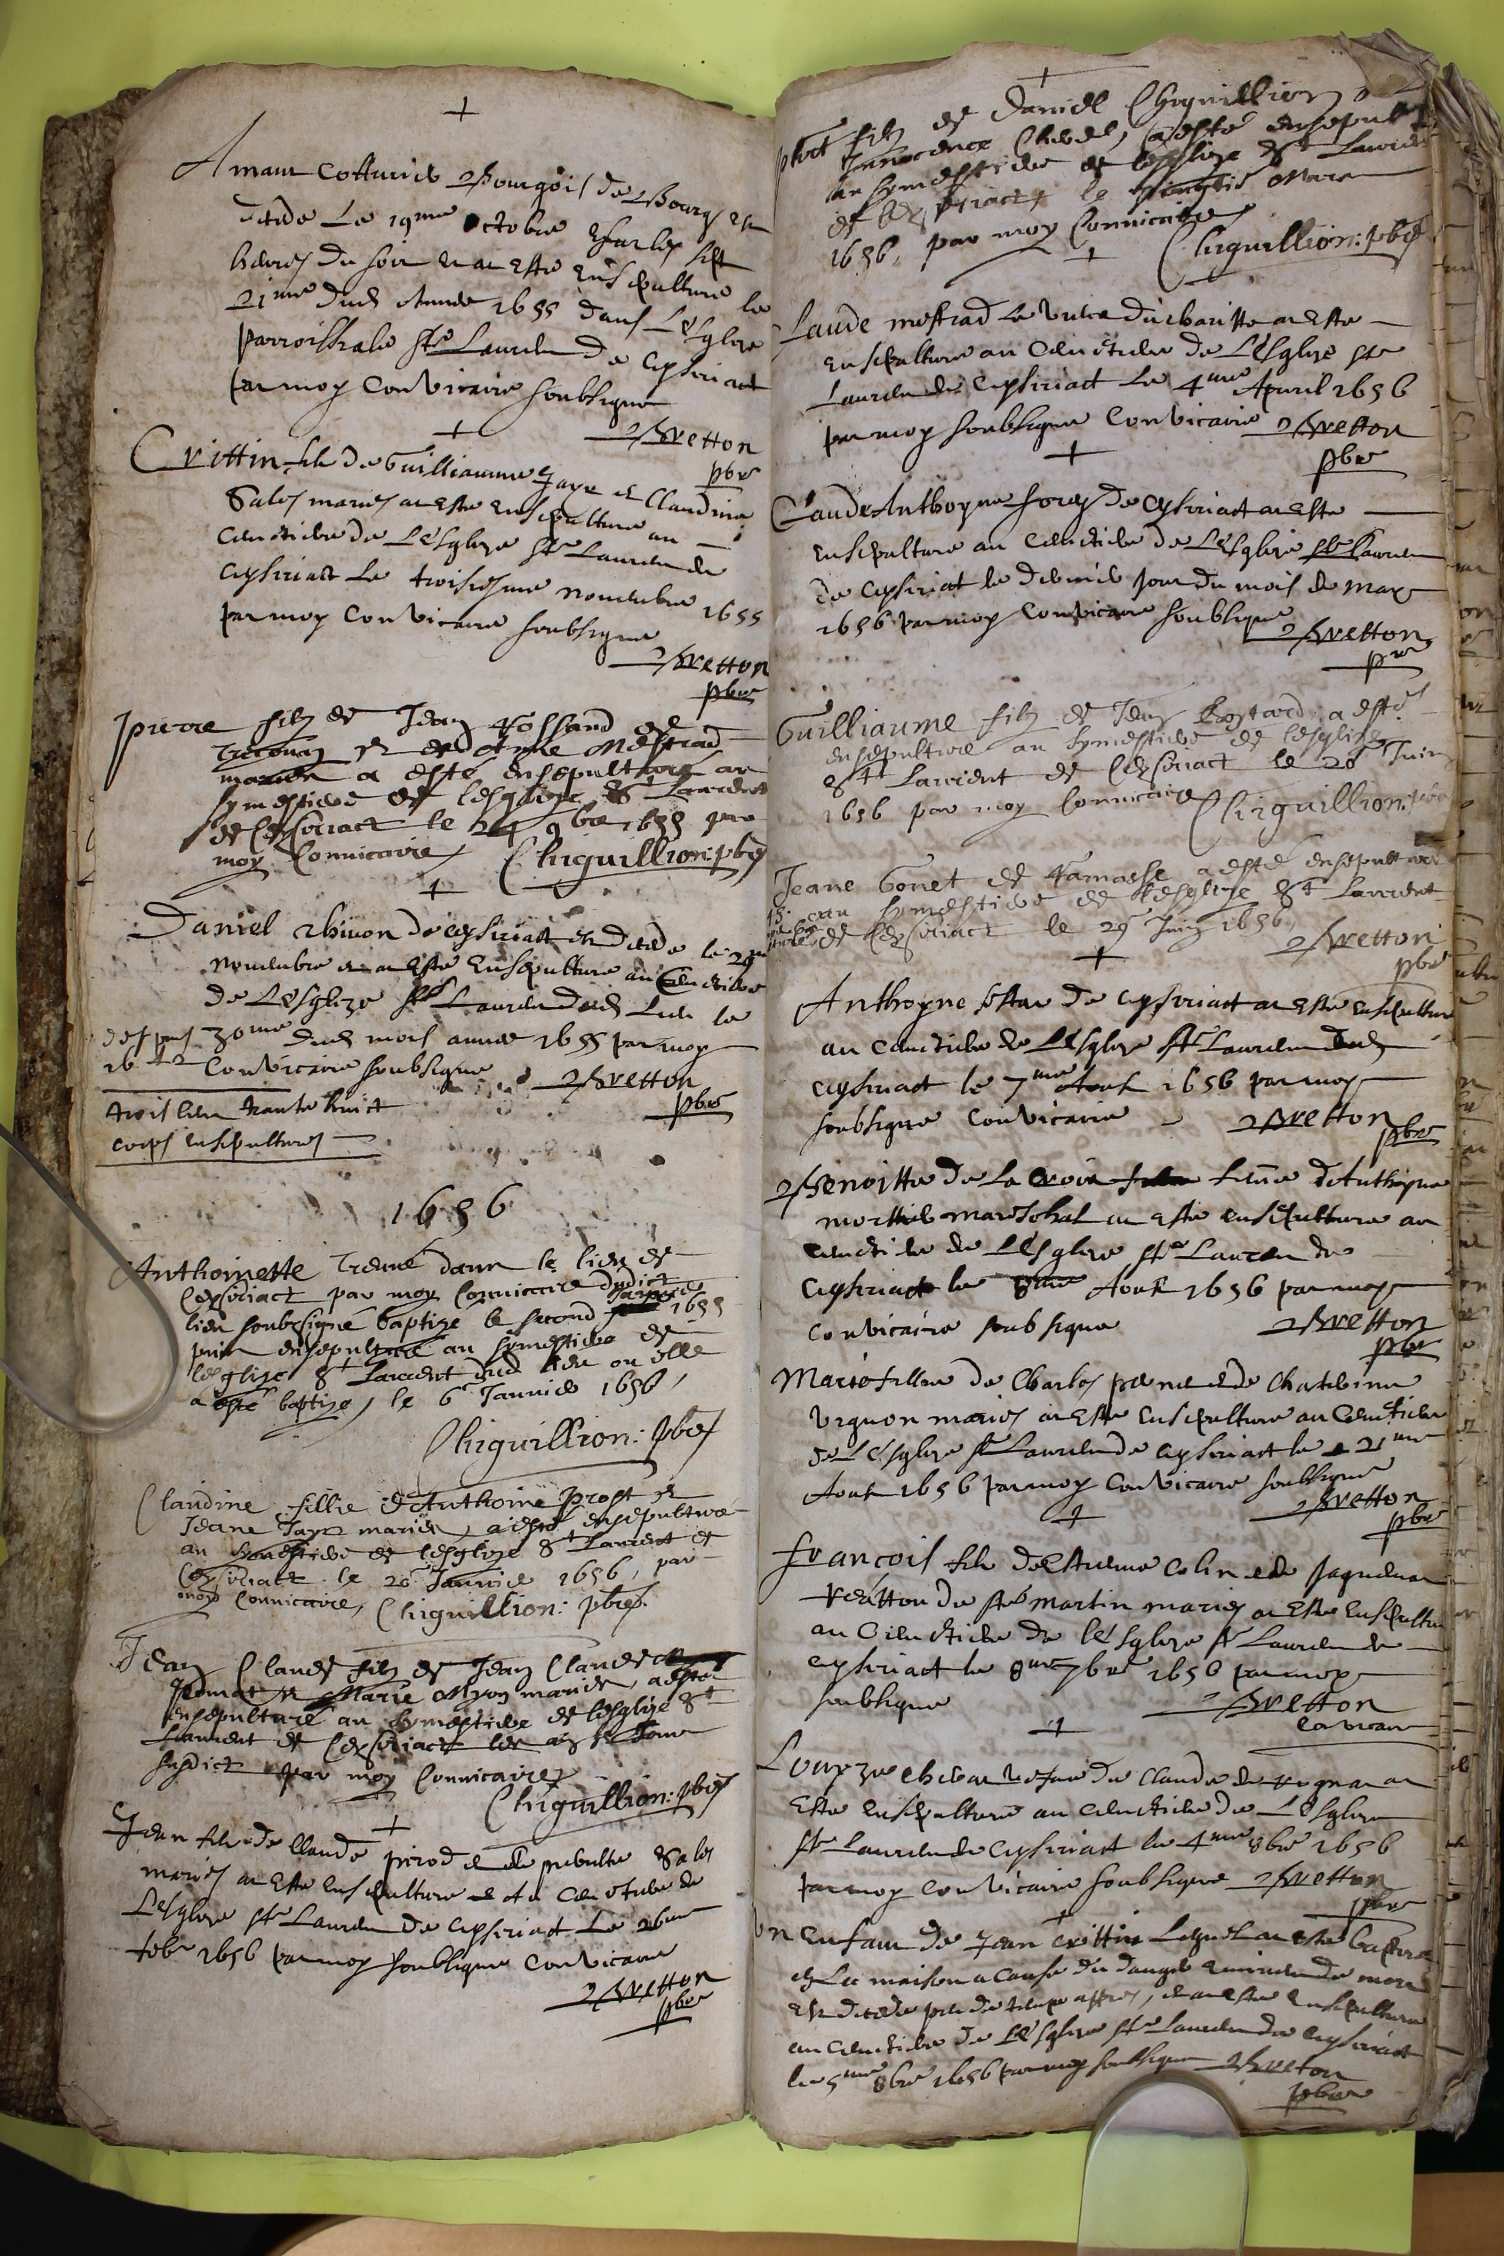 Amant Cotturier Bourgois de Bourg est
decedé Le 19me octobre sur les sept
heures du soir et a esté ensepulturé le
21me dud. 1655 dans L'Esglize
parroissiale St Laurent de Ceyseriact
par moy Convicaire soubsigné
Bretton
pbre
Crittin, filz de Guilliaume Jaye et Claudine
Sales mariés a esté ensepulturé au
Cemetiere de L'Esglize St Laurent de
Ceyseriact Le troisiesme novembre 1655
par moy Convicaire soubsigné
Bretton
pbre
Pierre filz de Jean Rossand de
et d'Anne Mestrad
mariés a esté ensepulturé au
symestiere de l'esglize St Laurent
de Ceyseriact le 24 9bre 1655 par
moy Convicaire Chiguillion: pbre
Daniel de Ceyseriact est decedé le 29me
novembre et a esté ensepulturé au Cemetiere
de L'Esglize St Laurent dud. Lieu le
30me dud. mois année 1655 par moy
Convicaire soubsigné Bretton
pbre
despuis
16
trois cens trante huict
corps ensepultures
1656
Anthoinette dans le lieu de
Ceyseriact par moy Convicaire dudict
lieu soubsigné baptize le second Janvier 1655
puis ensepulturé au symestiere de
l'esglize St Laurent dud. lieu ou elle
a esté baptizé, le 6 Janvier 1656,
Chiguillion: pbre
Claudine fillie d'Anthoine Prost et
Jeane Jayr mariés, a esté ensepulturé
au symestiere de l'esglize St Laurent de
Ceyseriact le 26 Janvier 1656, par
moy Convicaire, Chiguillion: pbre
Jean Claude filz de Jean Claude
et Marie Myon mariés, a esté
ensepulturé au symestiere de l'esglize St
Laurent de Ceyseriact les an et Jour
susdict par moy Convicaire
Chiguillion: pbre
Jean filz de Claude et Sales
mariés a esté ensepulturé au Cemetiere de
L'Esglize St Laurent de Ceyseriact Le
febr 1656 par moy soubsigné Convicaire
Bretton
pbre
filz de Daniel Chiguillion
Innocence a esté ensepulturé
au symestiere de l'esglize St Laurent
de Ceyseriact, le Mars
1656, par moy Convicaire
Chiguillion: pbre
Claude mestrad a esté
ensepulturé au Cemetiere de L'Esglize St
Laurent de Ceyseriact Le 4me Apvril 1656
par moy soubsigné Convicaire Bretton
pbre
Claude Anthoyne de Ceyseriact a esté
ensepulturé au Cemetiere de L'Esglize St Laurent
de Ceyseriat le dernier jour du mois de may
1656 par moy Convicaire soubsigné
Bretton
pbre
Guilliaume filz de Jean a esté
ensepulturé au symestiere de l'esglize
St Laurent de Ceyseriact le 26 Juin
1656 par moy Convicaire Chiguillion: pbre
Jeane Gonet de Ramasse a esté ensepulturé
au symestiere de l'esglize St Laurent
de Ceyseriact le 29 Juin 1656,
Bretton
pbre
Anthoyne de Ceyseriact a esté ensepulturé
au Cemetiere de L'Esglize St Laurent dud.
Ceyseriact le 7me Aoust 1656 par moy
soubsigné Convicaire Bretton
pbre
Benoitte de La Croix feme d'Anthoyne
mareschal a esté ensepulturé au
Cemetiere de L'Esglize St Laurent de
Ceyseriact le 8me Aoust 1656 par moy
Convicaire soubsigné Bretton
pbre
Marie fillie de Charles et de Chaterine
mariés a esté ensepulturé au Cemetiere
de L'Esglize St Laurent de Ceyseriact le 21me
Aoust 1656 par moy Convicaire soubsigné
Bretton
pbre
François filz d'Estienne Colin et de Jaquema
de St Martin mariés a esté ensepulturé
au Cemetiere de L'Esglize St Laurent de
Ceyseriact le 8me 7bre 1656 par moy
soubsigné Bretton
convicaire
Louyze vefue de Claude a
Esté ensepulturé au Cemetiere de L'Esglize
St Laurent de Ceyseriact le 4me 8bre 1656
par moy Convicaire soubsigné Bretton
pbre
Un enfant de Jean Crittin Lequel a esté baptizé
en La maison a cause du danger eminent de mort
Est decedé peu de temps apres, et a esté ensepulturé
au Cemetiere de L'Esglize St Laurent de Ceyseriact
le 5me 8bre 1656 par moy soubsigné Bretton
pbre